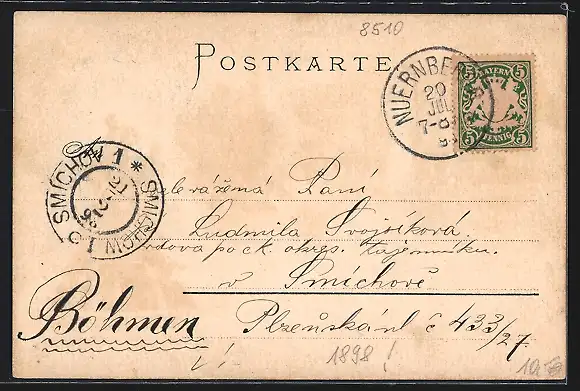 8510
POSTKARTE
NUERNBERG
20
JUL
7-8
BAYERN
5 5
5 5
PFENNIG
SMÍCHOV 1 * SMICHOW 1
Paní
Ludmila Svojsíková
vdova po c.k. okres. tajemníku.
v Smíchově
Böhmen
Plzeňská ul č 433/27
1898!
10.-